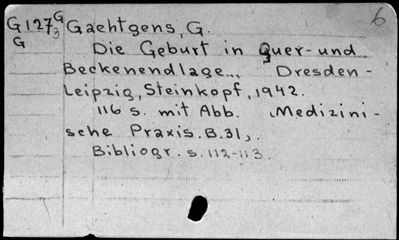 G127 G Gaehtgens, G. 6
G 3
Die Geburt in Quer- und
Beckenendlage... Dresden-
Leipzig, Steinkopf, 1942.
116 s. mit Abb. (Medizini-
sche Praxis. B.31).
Bibliogr. s. 112-113.